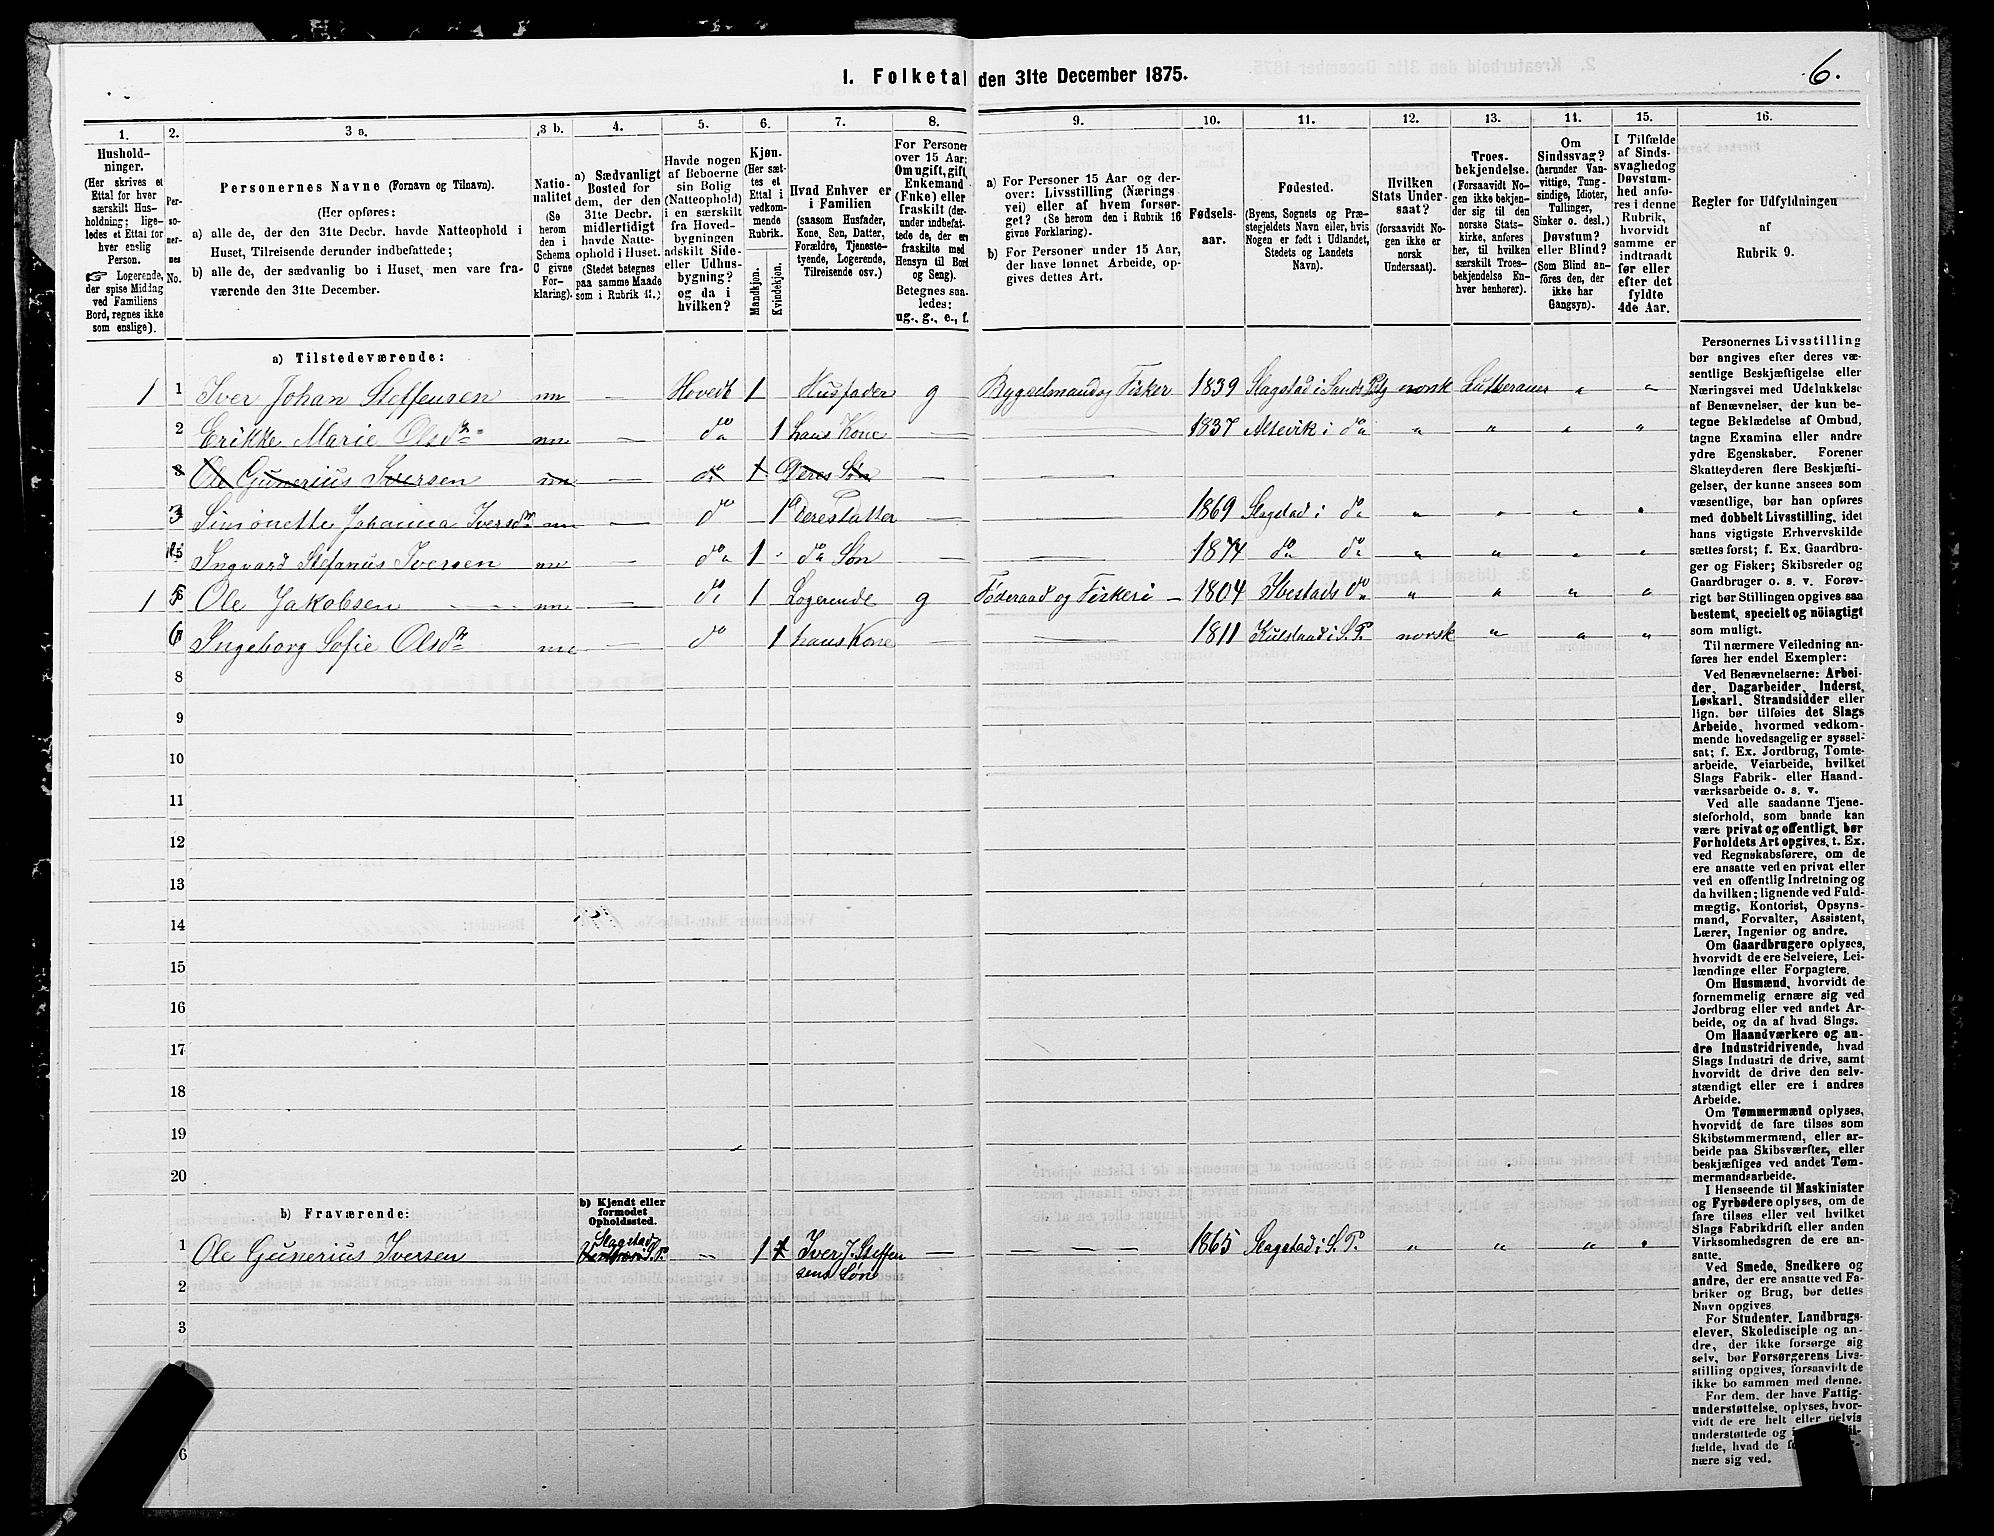 1. Folketal den 31te December 1875.
6.
1.
2.
3 a.
3 b.
4.
5.
6.
7.
8.
9.
10.
11.
12.
13.
14.
15.
16.
Hushold-
ninger.
(Her skrives et
Ettal for hver
særskilt Hus-
holdning; lige-
ledes et Ettal for
hver enslig
Person.
☞ Logerende,
der spise Middag
ved Familiens
Bord, regnes ikke
som enslige).
Per-
so-
ner-
nes
No.
Personernes Navne (Fornavn og Tilnavn).
(Her opføres:
a) alle de, der den 31te Decbr. havde Natteophold i
Huset, Tilreisende derunder indbefattede;
b) alle de, der sædvanlig bo i Huset, men vare fra-
værende den 31te December.
Natio-
nalitet
(Se
herom
den i
Schema
C givne
For-
klaring).
a) Sædvanligt
Bosted for
dem, der den
31te Decbr.
midlertidigt
havde Natte-
ophold i Huset.
(Stedet betegnes
paa samme Maade
som i Rubrik 11.)
Havde nogen
af Beboerne
sin Bolig
(Natteophold)
i en særskilt
fra Hoved-
bygningen
adskilt Side-
eller Udhus-
bygning?
og da i
hvilken?
Kjøn.
(Her sæt-
tes et
Ettal i
vedkom-
mende
Rubrik.
Mandkjøn.
Kvindekjøn.
Hvad Enhver er
i Familien
(saasom Husfader,
Kone, Søn, Datter,
Forældre, Tjeneste-
tyende, Logerende,
Tilreisende osv.)
For Personer
over 15 Aar:
Om ugift, gift,
Enkemand
(Enke) eller
fraskilt (der-
under indbefat-
tede de, der er
fraskilte med
Hensyn til Bord
og Seng).
Betegnes saa-
ledes:
ug., g., e., f.
a) For Personer 15 Aar og der-
over: Livsstilling (Nærings-
vei) eller af hvem forsør-
get? (Se herom den i Rubrik 16
givne Forklaring).
b) For Personer under 15 Aar,
der have lønnet Arbeide, op-
gives dettes Art.
Fødsels-
aar.
Fødested.
(Byens, Sognets og Præ-
stegjeldets Navn eller, hvis
Nogen er født i Udlandet,
Stedets og Landets
Navn).
Hvilken
Stats Under-
saat?
(forsaavidt No-
gen ikke er
norsk
Undersaat).
Troes-
bekjendelse.
(Forsaavidt No-
gen ikke bekjen-
der sig til den
norske Stats-
kirke, anføres
her, til hvilken
særskilt Troes-
bekjendelse En-
hver henhører).
Om
Sindssvag?
(herunder Van-
vittige, Tung-
sindige, Idioter,
Tullinger,
Sinker o. desl.)
Døvstum?
eller Blind?
(Som Blind an-
føres den, der
ikke har
Gangsyn).
I Tilfælde
af Sinds-
svaghed og
Døvstum-
hed anfø-
res i denne
Rubrik,
hvorvidt
samme er
indtraadt
før eller
efter det
fyldte
4de Aar.
Regler for Udfyldningen
af
Rubrik 9.
a) Tilstedeværende:
1 1 Iver Johan Steffensen nn — Hovedb 1 Husfader g Bygselmand og Fisker 1839 Slagstad i Sands Pstg norsk Lutheraner " "
2 Erikke Marie Olsdr nn — do 1 hans Kone — — 1837 Altevik i do " " " "
3 Ole Gunerius Iversen nn — do 1 Deres Søn — —
3 Simonette Johanna Iversdr nn — do 1 Deres Datter — — 1869 Slagstad i do " " " "
5 Ingvard Stefanus Iversen nn — do 1 do Søn — — 1874 do do " " " "
1 5 Ole Jakobsen nn — do 1 Logerende g Føderaad og Fiskeri — 1804 Ibestads do " " " "
6 Ingeborg Sofie Olsdr nn — do 1 hans Kone — — 1811 i S. P. norsk " " "
8
9
10
11
12
13
14
15
16
17
18
19
20
b) Fraværende:
b) Kjendt eller
formodet
Opholdssted.
1 Ole Gunerius Iversen Slagstad i S. P. — 1 Iver J. Steffen — — 1865 Slagstad i S. P. " " " "
sens Søn
2
3
6
Personernes Livsstilling
bør angives efter deres væ-
sentlige Beskjæftigelse eller
Næringsvei med Udelukkelse
af Benævnelser, der kun be-
tegne Beklædelse af Ombud,
tagne Examina eller andre
ydre Egenskaber. Forener
Skatteyderen flere Beskjæfti-
gelser, der kunne ansees som
væsentlige, bør han opføres
med dobbelt Livsstilling, idet
hans vigtigste Erhvervskilde
sættes først; f. Ex. Gaardbru-
ger og Fisker; Skibsreder og
Gaardbruger o. s. v. Forøv-
rigt bør Stillingen opgives saa
bestemt, specielt og nöiagtigt
som muligt.
Til nærmere Veiledning an-
føres her endel Exempler:
Ved Benævnelserne: Arbei-
der, Dagarbeider, Inderst,
Løskarl, Strandsidder eller
lign. bør tilføies det Slags
Arbeide, hvormed vedkom-
mende hovedsagelig er syssel-
sat; f. Ex. Jordbrug, Tomte-
arbeide, Veiarbeide, hvilket
Slags Fabrik- eller Haand-
værksarbeide o. s. v.
Ved alle saadanne Tjene-
steforhold, som baade kan
være privat og offentligt, bør
Forholdets Art opgives, t. Ex.
ved Regnskabsførere, om de
ere ansatte ved en privat eller
ved en offentlig Indretning og
da hvilken; lignende ved Fuld-
mægtig, Kontorist, Opsyns-
mand, Forvalter, Assistent,
Lærer, Ingeniør og andre.
Om Gaardbrugere oplyses,
hvorvidt de ere Selveiere, Lei-
lændinge eller Forpagtere.
Om Husmænd, hvorvidt de
fornemmelig ernære sig ved
Jordbrug eller ved andet Ar-
beide, og da af hvad Slags.
Om Haandværkere og an-
dre Industridrivende, hvad
Slags Industri de drive, samt
hvorvidt de drive den selv-
stændigt eller ere i andres
Arbeide.
Om Tømmermænd oplyses,
hvorvidt de fare tilsøs som
Skibstømmermænd, eller ar-
beide paa Skibsværfter, eller
beskjæftiges ved andet Tøm-
mermandsarbeide.
I Henseende til Maskinister
og Fyrbødere oplyses, om de
fare tilsøs eller ved hvilket
Slags Fabrikdrift eller anden
Virksomhedsgren de ere an-
satte.
Ved Smede, Snedkere og
andre, der ere ansatte ved Fa-
briker og Brug, bør dettes
Navn opgives.
For Studenter, Landbrugs-
elever, Skoledisciple og an-
dre, der ikke forsørge sig
selv, bør Forsørgerens Livs-
stilling opgives, forsaavidt de
ikke bo sammen med denne.
For dem, der have Fattig-
understøttelse, oplyses, hvor-
vidt de ere helt eller delvis
understøttede og i
fælde, hvad de
nære sig ved.